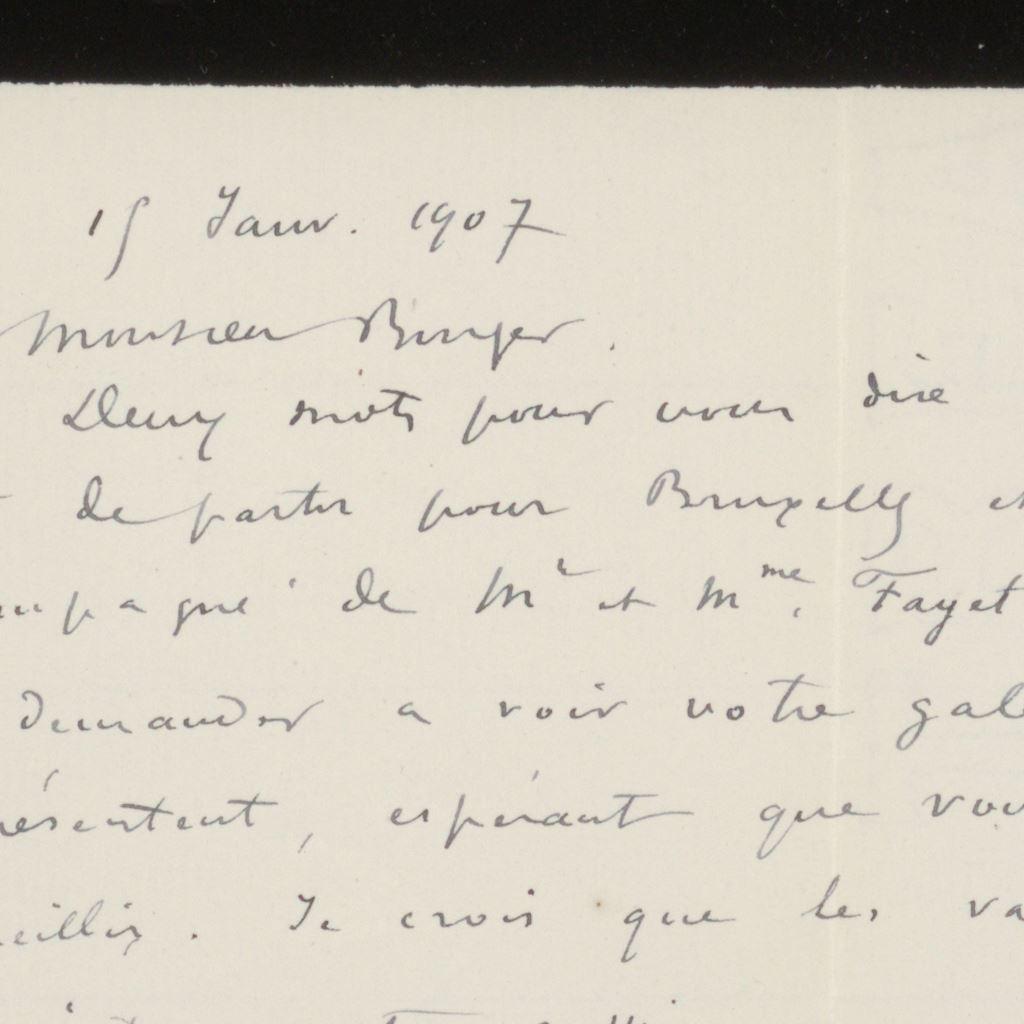 15 Janv. 1907
Monsieur Bonger.
Deux mots pour vous dire
de partir pour Bruxelles et
mpagné de Mr et Mme. Fayet
demander a voir votre gale
résentent, espérant que vou
eillir. Je crois que les va